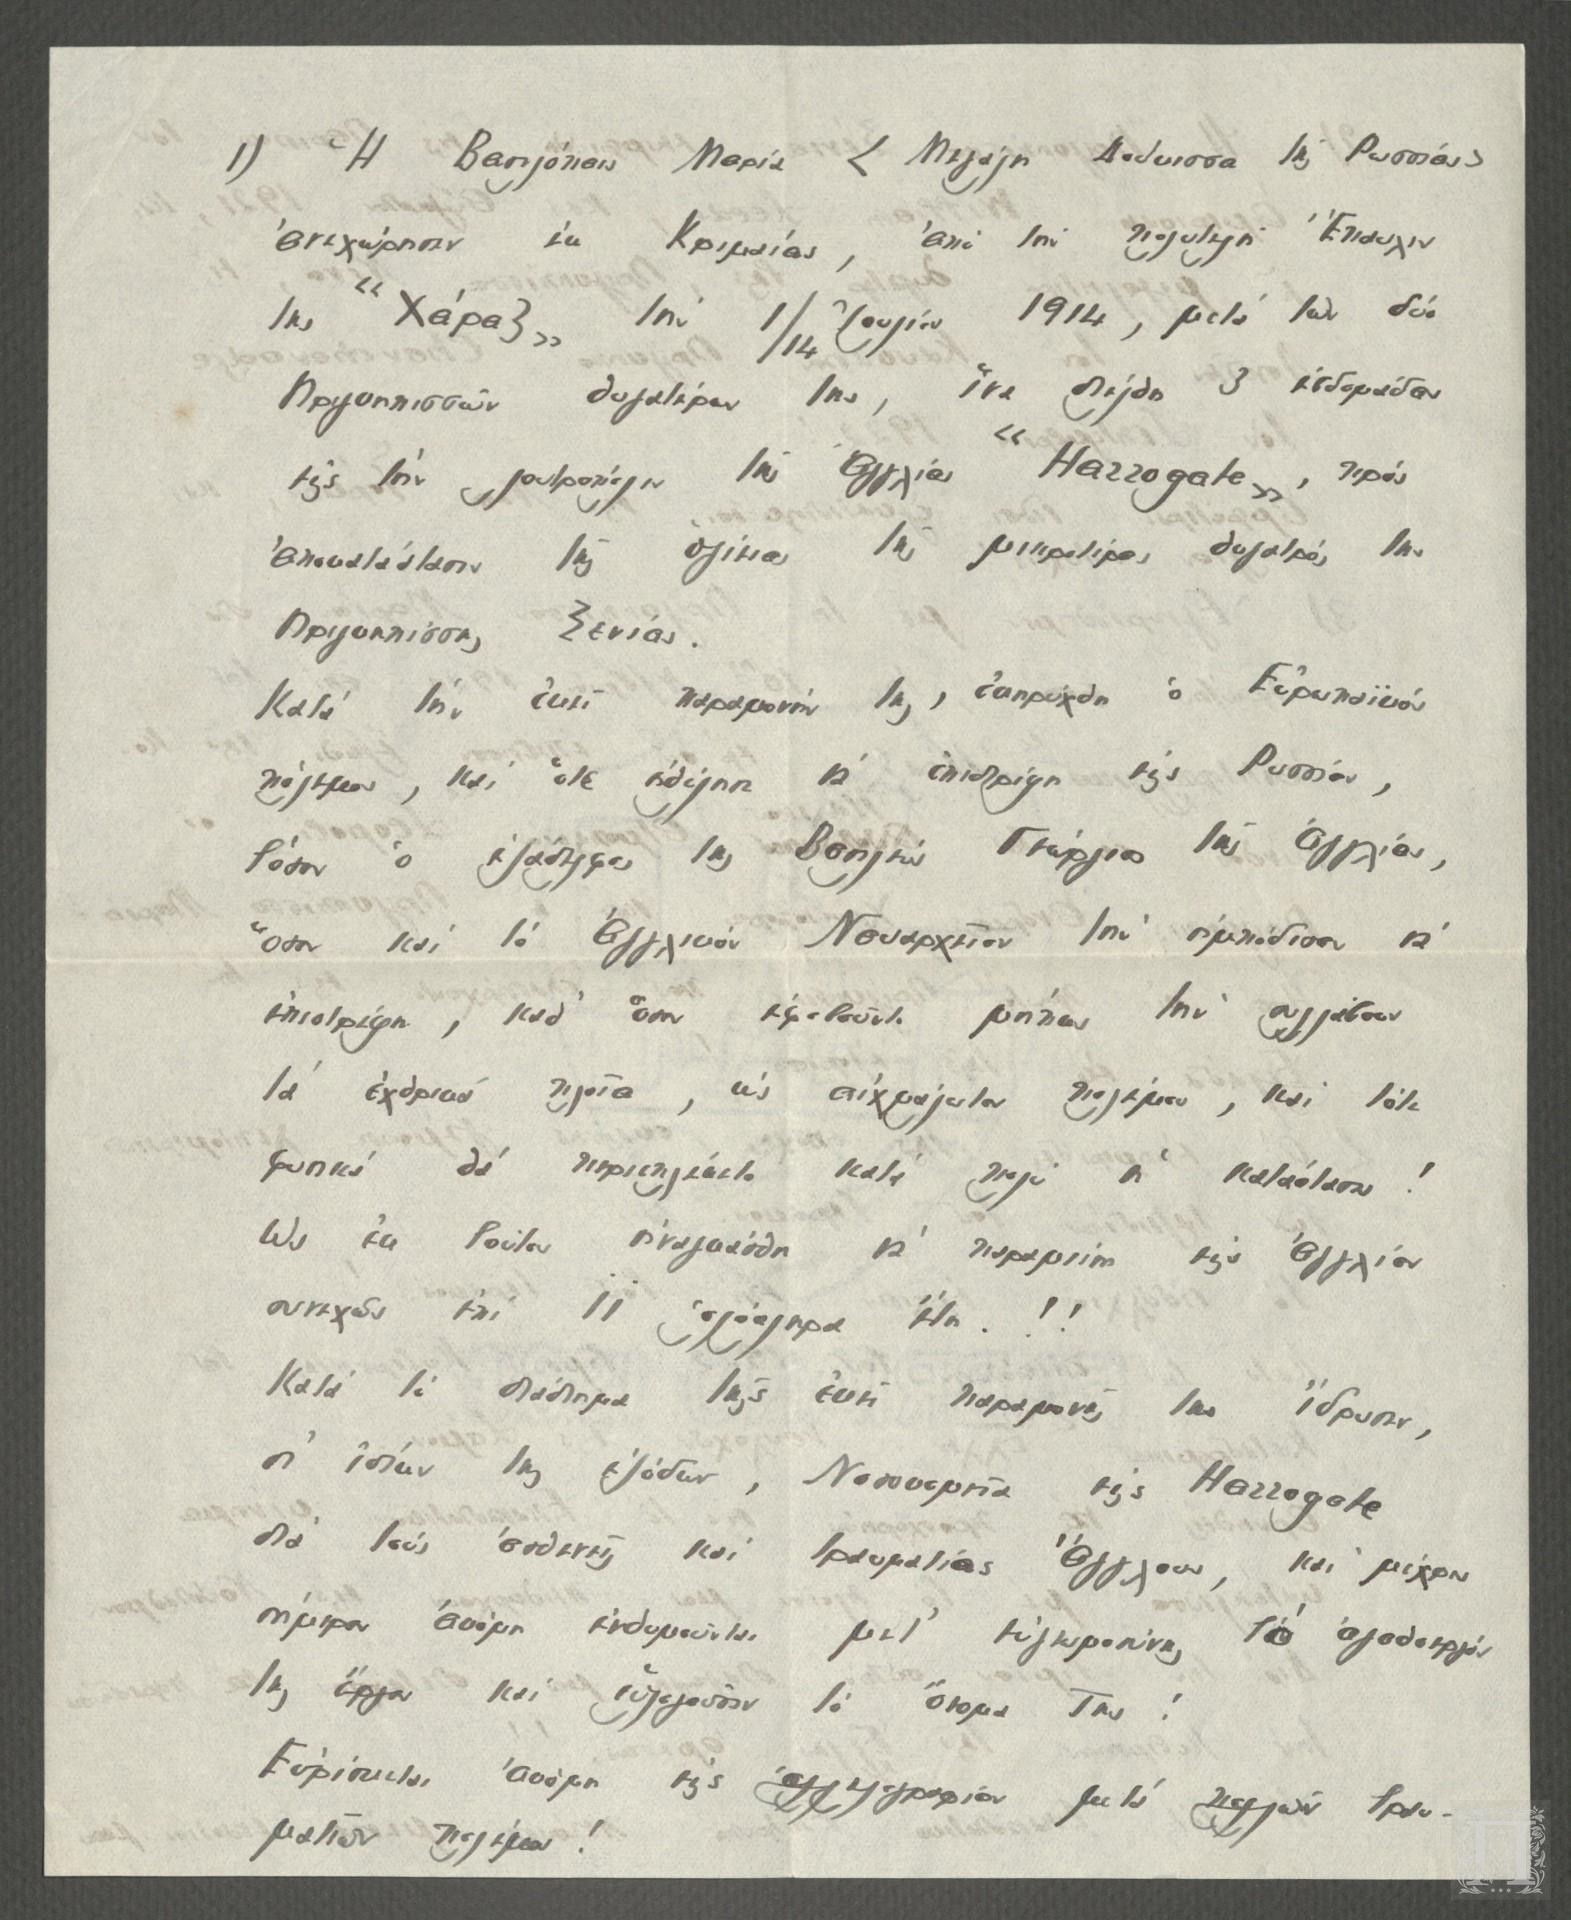 1) Ἡ Βασιλόπαις Μαρία < Μεγάλη Δούκισσα τῆς Ρωσσίας >
ἀνεχώρησεν ἐκ Κριμαίας, ἀπό τήν πολυτελῆ Ἔπαυλιν
της "Χάραξ„ τήν 1/14 Ἰουλίου 1914, μετά τῶν δύο
Πριγκηπισσῶν θυγατέρων της, ἵνα διέλθῃ 3 ἑβδομάδας
εἰς τήν λουτρόπολιν τῆς Ἀγγλίας "Harrogate„, πρός
ἀποκατάστασιν τῆς ὑγείας τῆς μικροτέρας θυγατρός της
Πριγκηπίσσης Ξενίας.
Κατά τήν ἐκεῖ παραμονήν της, ἐκηρύχθη ὁ Εὐρωπαϊκός
πόλεμος, καί ὅτε ἠθέλησε νά ἐπιστρέψῃ εἰς Ρωσσίαν,
τόσον ὁ ἐξάδελφος της Βασιλεύς Γεώργιος τῆς Ἀγγλίας,
ὅσον καί τό Ἀγγλικόν Ναυαρχεῖον τήν ἠμπόδισαν νά
ἐπιστρέψῃ, καθ' ὅσον ἐφοβοῦντο μήπως τήν συλλάβουν
τά ἐχθρικά πλοῖα, ὡς αἰχμάλωτον πολέμου, καί τότε
φυσικά θά περιεπλέκετο κατά πολύ ἡ κατάστασις!
Ὡς ἐκ τούτου ἠναγκάσθη νά παραμείνῃ εἰς Ἀγγλίαν
συνεχῶς ἐπί 11 ὁλόκληρα ἔτη.!!
Κατά τό διάστημα τῆς ἐκεῖ παραμονῆς της ἵδρυσεν,
δι' ἰδίων της ἐξόδων, Νοσοκομεῖα εἰς Harrogate
διά τούς ἀσθενεῖς καί τραυματίας Ἄγγλους, καί μέχρι
σήμερον ἀκόμη ἐνθυμοῦνται μετ' εὐγνωμοσύνης τό ἀγαθοεργόν
της ἔργον καί εὐλογοῦσιν τό ὄνομα Της!
Εὑρίσκεται ἀκόμη εἰς ἀλληλογραφίαν μετά πολλῶν τραυ-
ματιῶν πολέμου!